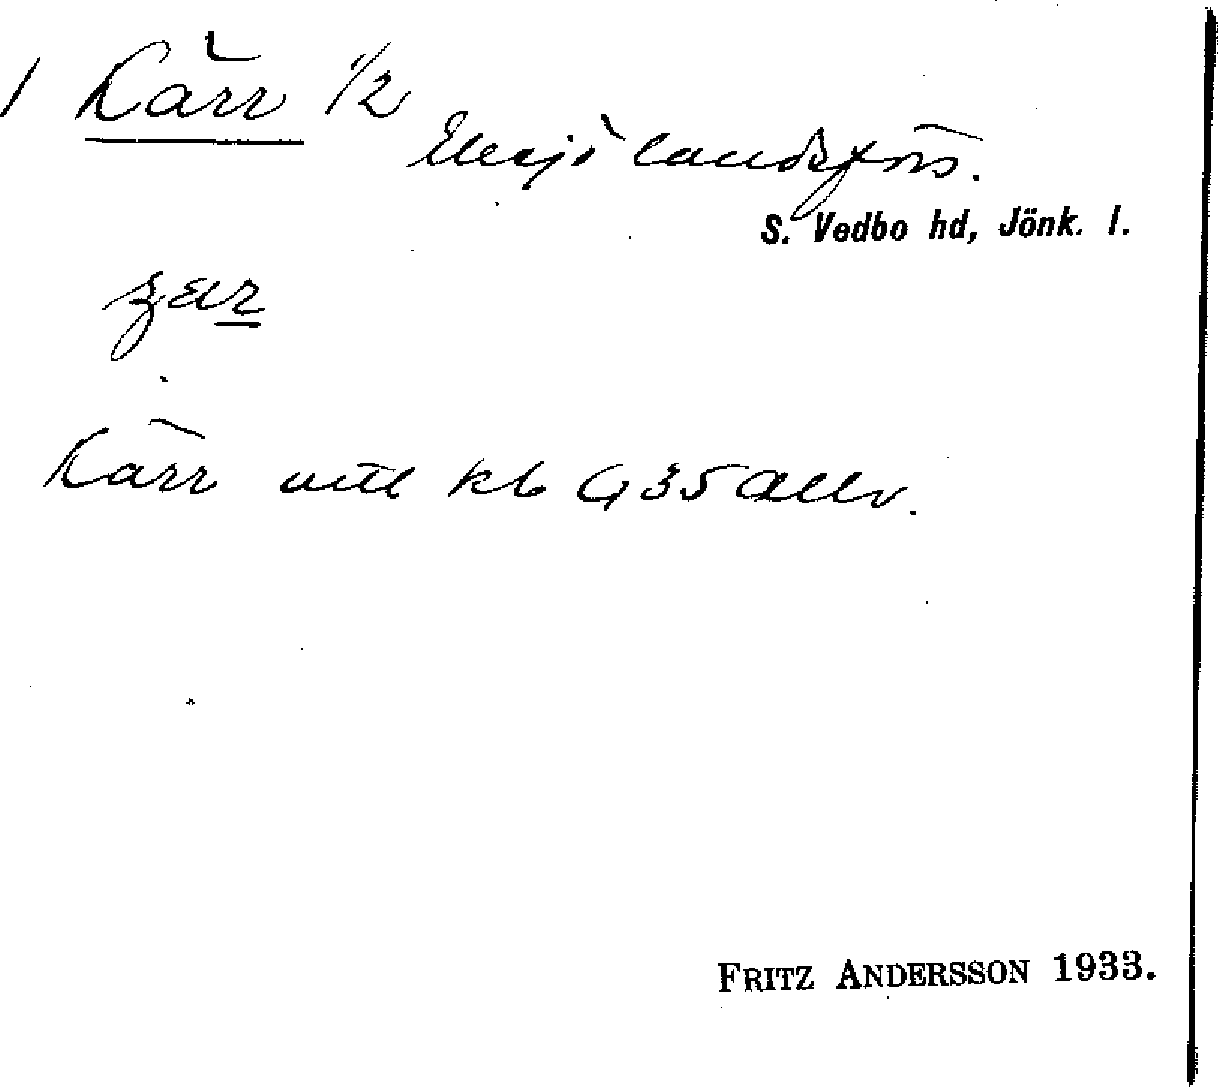 1 Kärr 1/2
Eksjö landsförs.
S. Vedbo hd, Jönk. l.
Kärr mtl kb G 35 Allv.
FRITZ ANDERSSON 1933.